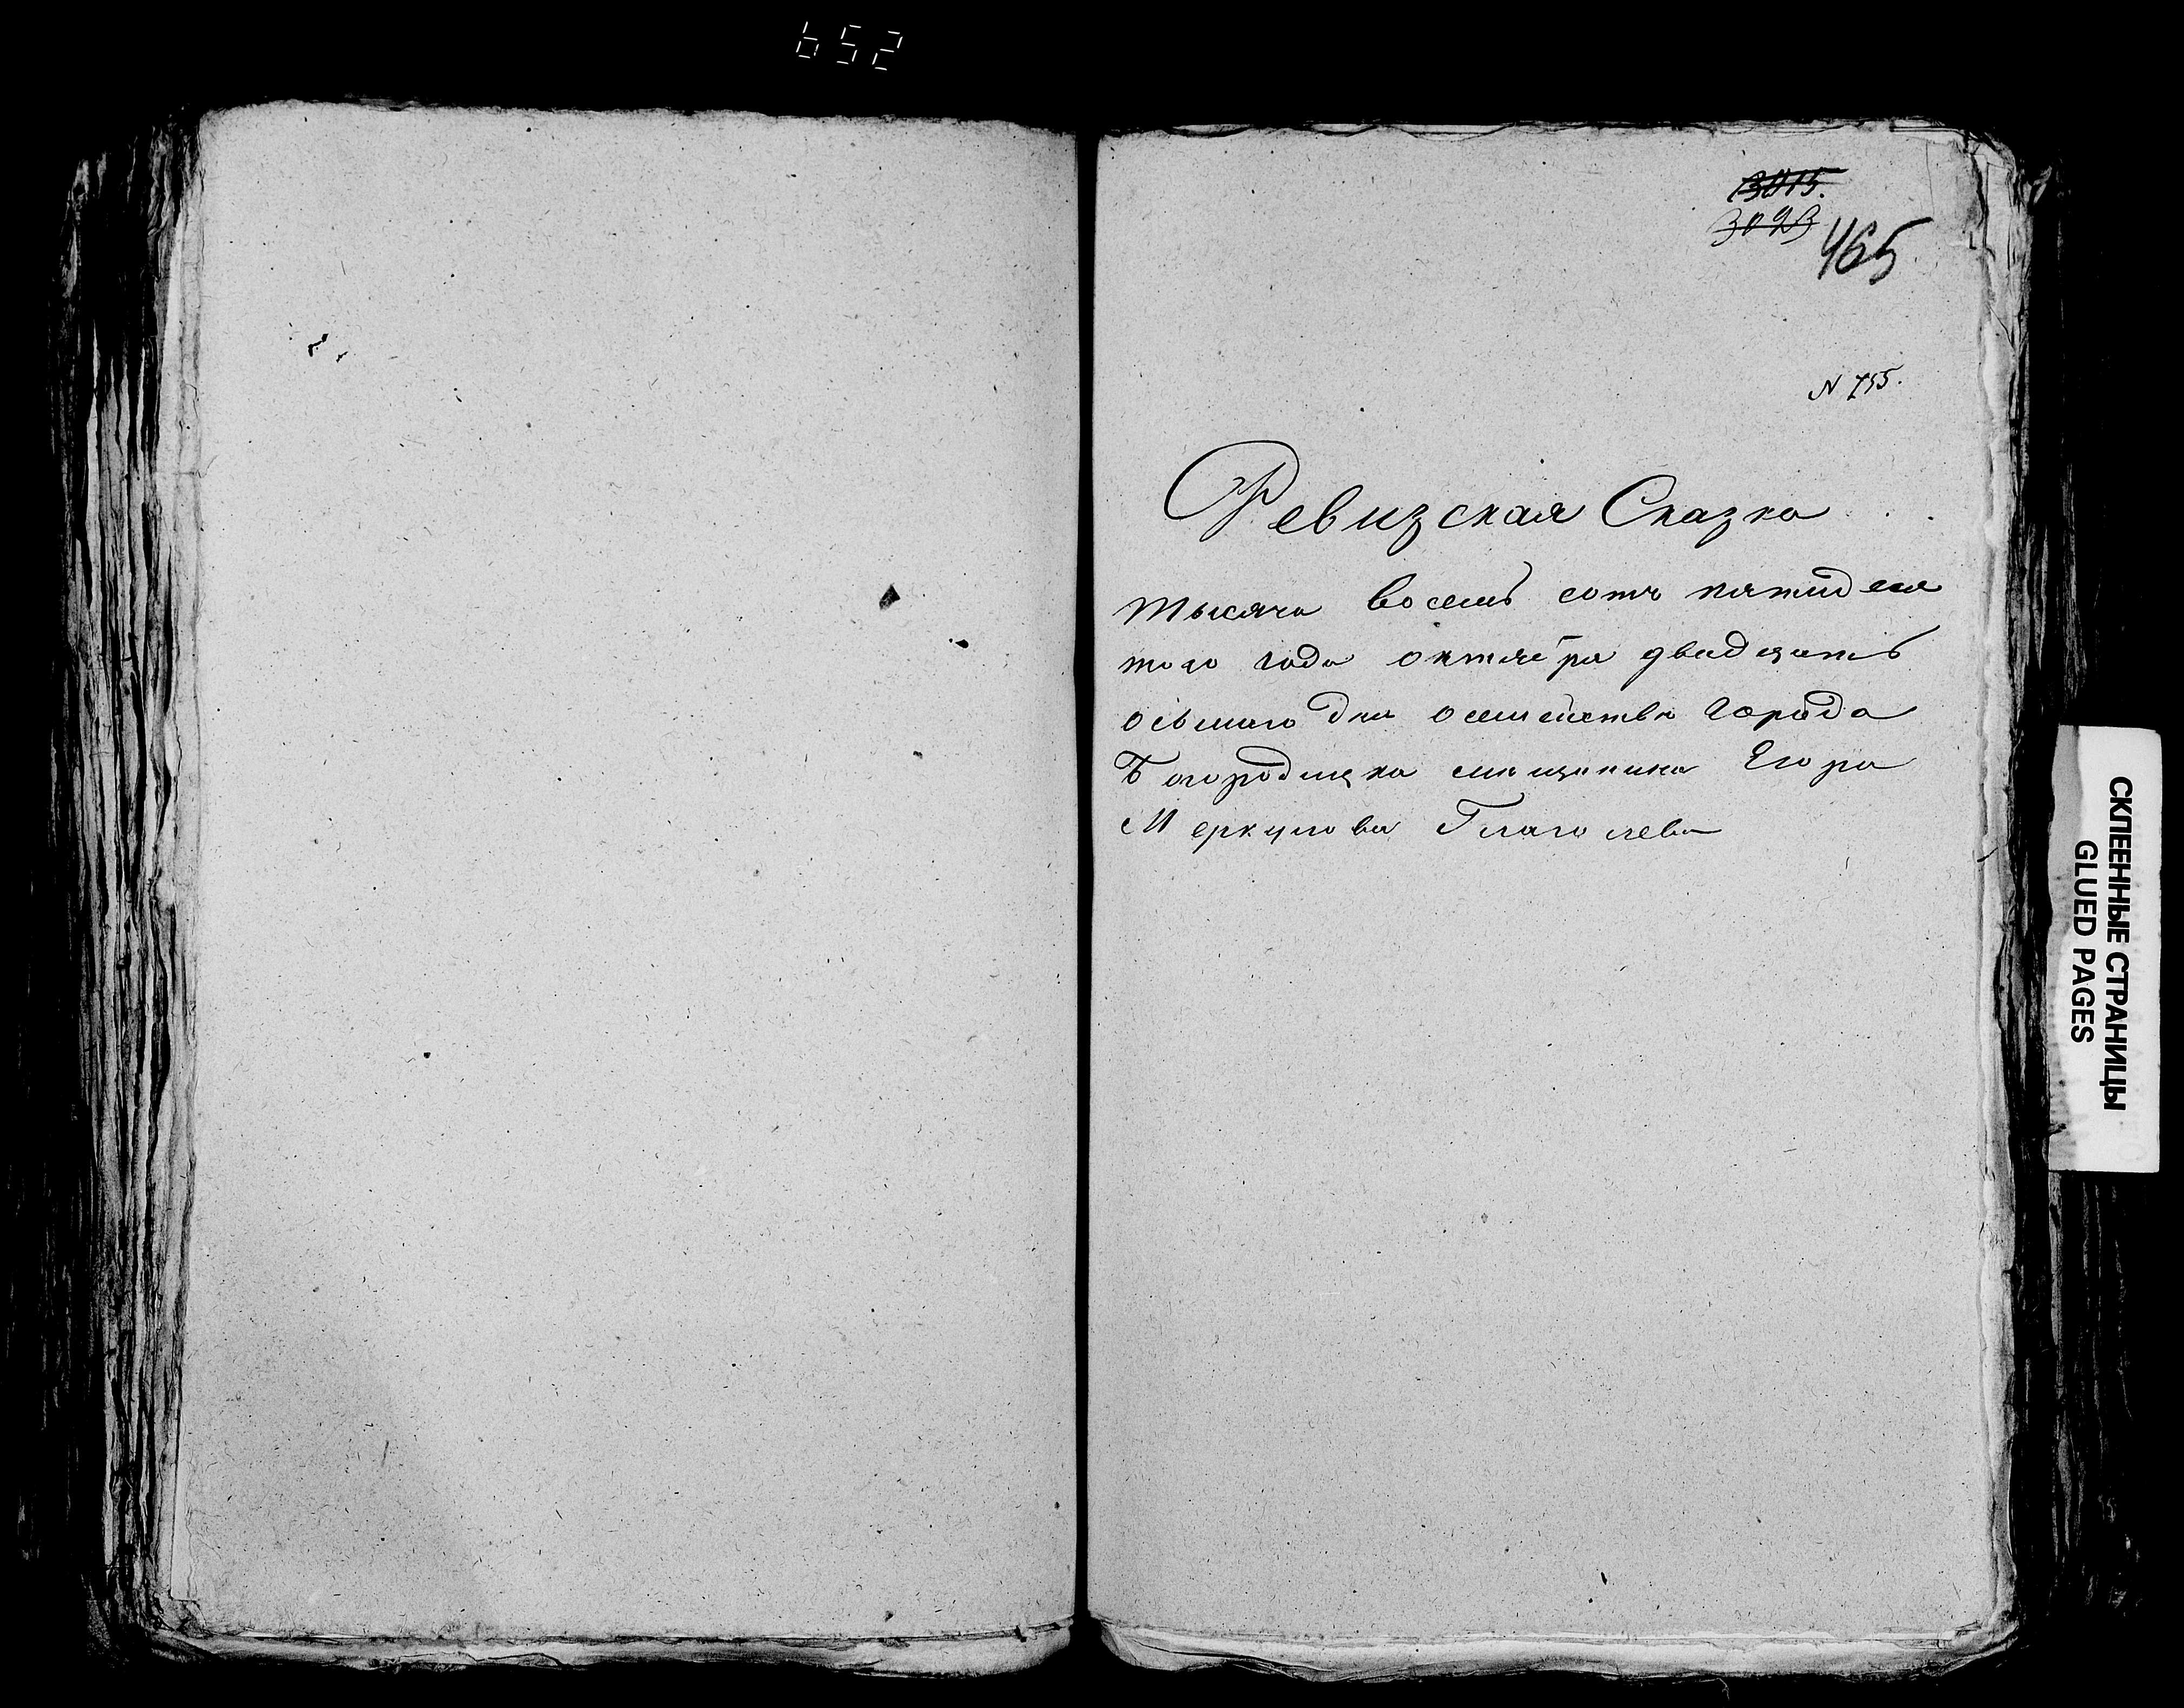 652
3015.
3093
465
N 755.
Ревизская Сказка
тысяча восемь сотъ пятидеся
того года октября двадцать
осьмаго дня о семействе города
Богородицка мещанина Егора
Меркулова Глаголева
СКЛЕЕННЫЕ СТРАНИЦЫ
GLUED PAGES